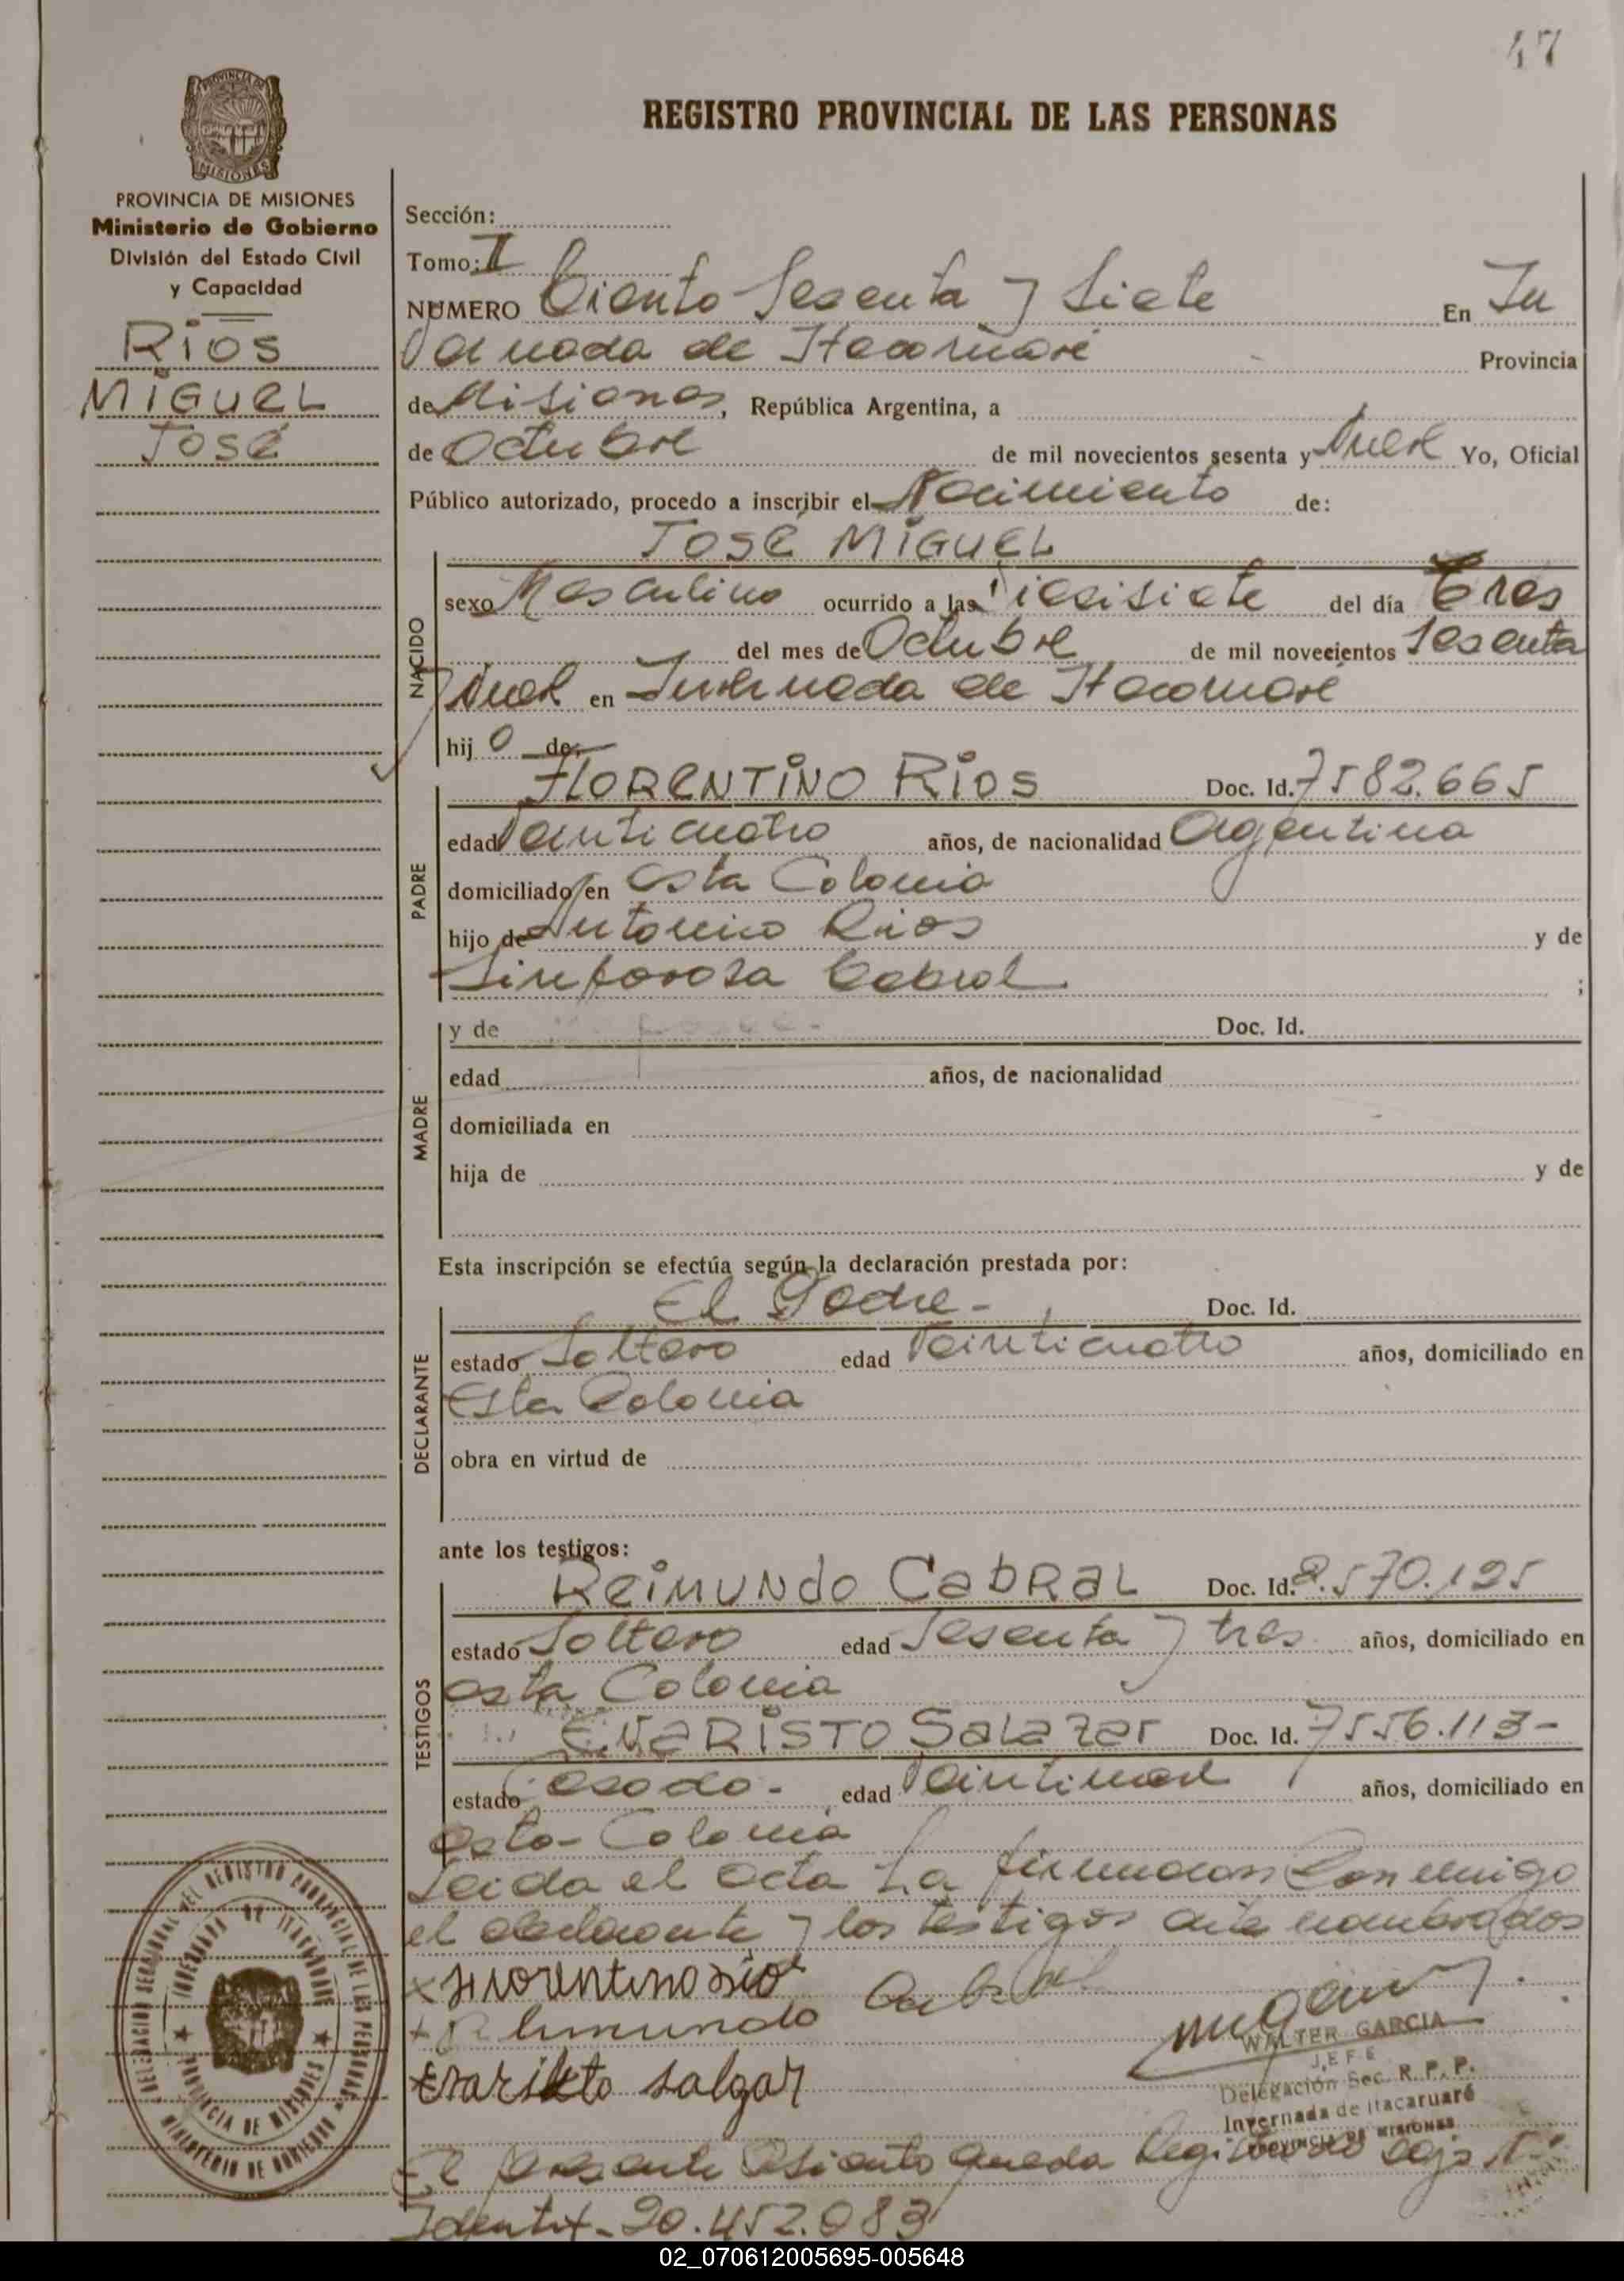 47
REGISTRO PROVINCIAL DE LAS PERSONAS
PROVINCIA DE MISIONES
Ministerio de Gobierno
División del Estado Civil
y Capacidad
RIOS
MIGUEL
JOSÉ
Sección:
Tomo: I
NUMERO Ciento Sesenta y Siete En In
vernada de Itacaruaré Provincia
de Misiones, República Argentina, a
de Octubre de mil novecientos sesenta y Nueve Yo, Oficial
Público autorizado, procedo a inscribir el Nacimiento de:
JOSÉ MIGUEL
NACIDO
sexo Masculino ocurrido a las diecisiete del día tres
del mes de Octubre de mil novecientos Sesenta
y Nueve en Invernada de Itacaruaré
hijo de:
PADRE
FLORENTINO RIOS Doc. Id. 7582.665
edad Veinticuatro años, de nacionalidad Argentina
domiciliado en Esta Colonia
hijo de Antonio Rios y de
Sinforosa Cabral ;
MADRE
y de Doc. Id.
edad años, de nacionalidad
domiciliada en
hija de y de
Esta inscripción se efectúa según la declaración prestada por:
DECLARANTE
El Padre - Doc. Id.
estado Soltero edad Veinticuatro años, domiciliado en
Esta Colonia
obra en virtud de
ante los testigos:
TESTIGOS
REIMUNDO CABRAL Doc. Id. 2.570.195
estado Soltero edad Sesenta y tres años, domiciliado en
esta Colonia
EVARISTO SALAZAR Doc. Id. 7556.113-
estado Casado - edad Veintinueve años, domiciliado en
esta Colonia
Leida el acta La firmaron Conmigo
el declarante y los testigos ante nombrados
x Florentino Rios
+ Reimundo Cabral
Evaristo Salazar
WALTER GARCIA
JEFE
Delegación Sec. R. P. P.
Invernada de Itacaruaré
PROVINCIA DE MISIONES
DELEGACION SECCIONAL DEL REGISTRO PROVINCIAL DE LAS PERSONAS
INVERNADA DE ITACARUARE
PROVINCIA DE MISIONES
MINISTERIO DE GOBIERNO
El presente Asiento queda Registrado bajo N°
Identif - 20.452.083
02_070612005695-005648